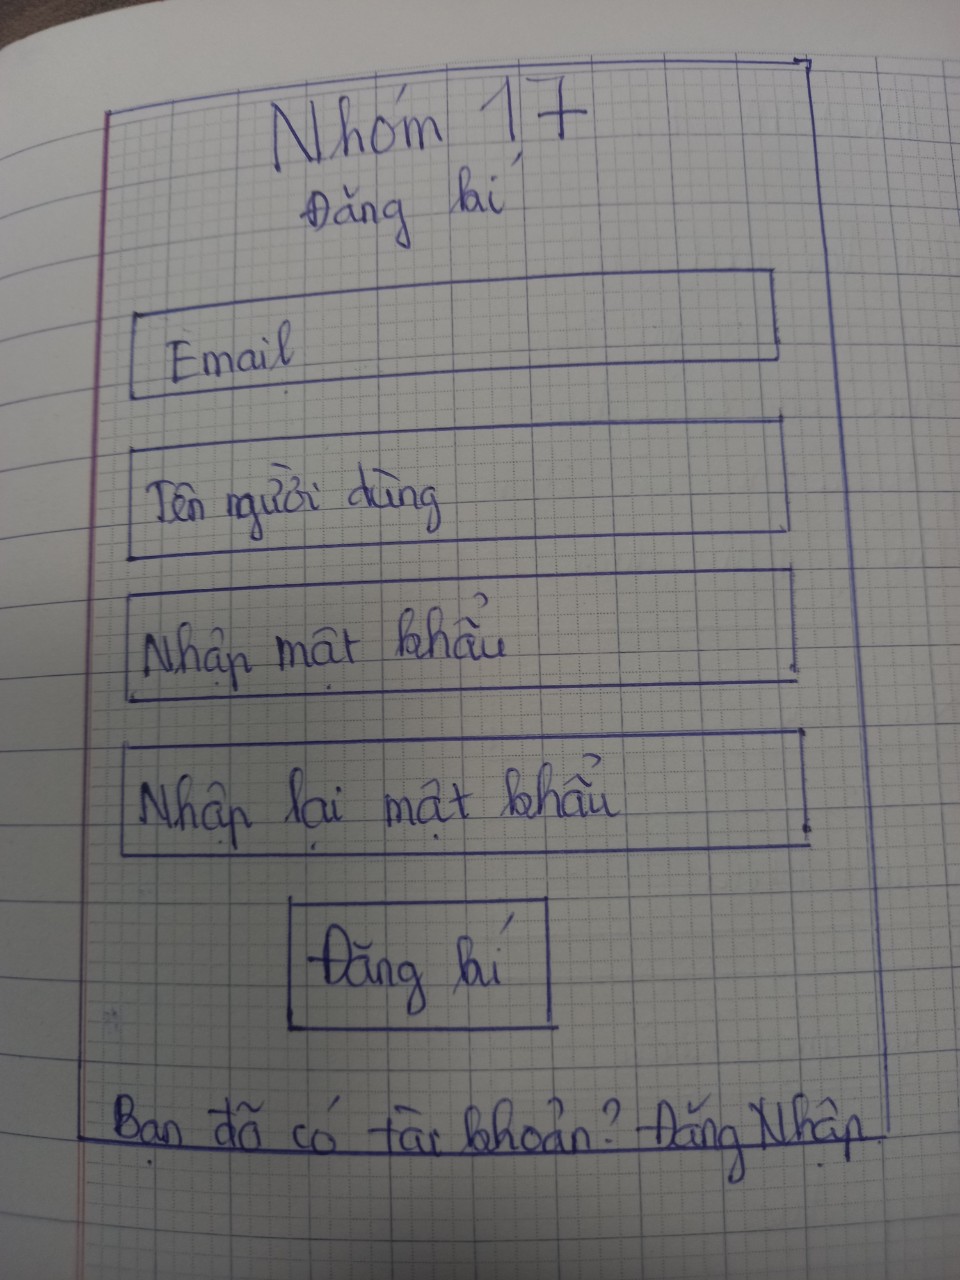 Nhóm 17
Đăng kí
Email
Tên người dùng
Nhập mật khẩu
Nhập lại mật khẩu
Đăng kí
Bạn đã có tài khoản? Đăng Nhập